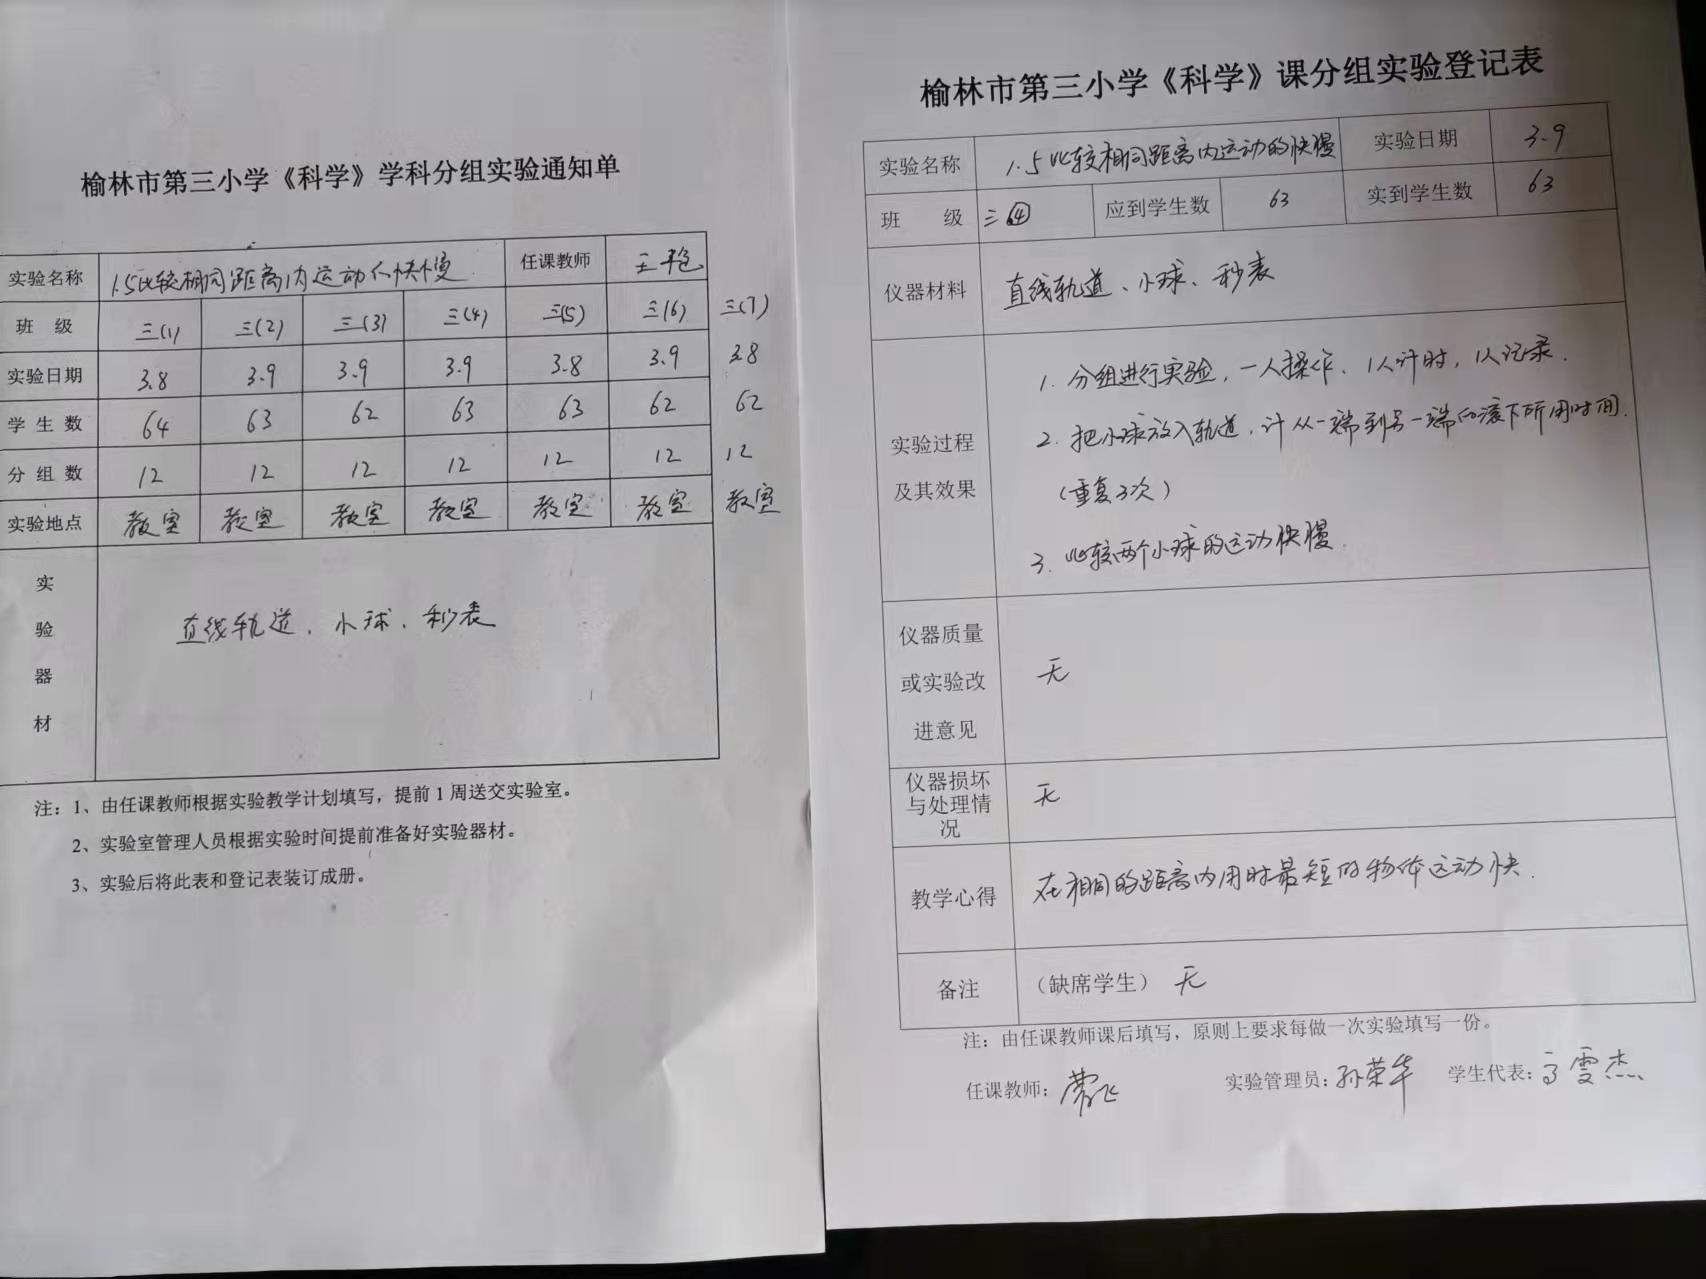 榆林市第三小学《科学》学科分组实验通知单
实验名称 1.5比较相同距离内运动的快慢 任课教师 王艳
班 级 三(1) 三(2) 三(3) 三(4) 三(5) 三(6) 三(7)
实验日期 3.8 3.9 3.9 3.9 3.8 3.9 3.8
学 生 数 64 63 62 63 63 62 62
分 组 数 12 12 12 12 12 12 12
实验地点 教室 教室 教室 教室 教室 教室 教室
实
验
器
材
直线轨道、小球、秒表
注：1、由任课教师根据实验教学计划填写，提前1周送交实验室。
2、实验室管理人员根据实验时间提前准备好实验器材。
3、实验后将此表和登记表装订成册。
榆林市第三小学《科学》课分组实验登记表
实验名称 1.5比较相同距离内运动的快慢 实验日期 3.9
班 级 三④ 应到学生数 63 实到学生数 63
仪器材料 直线轨道、小球、秒表
实验过程
及其效果
1. 分组进行实验，一人操作、1人计时，1人记录.
2. 把小球放入轨道，计从一端到另一端的滚下所用时间.
（重复3次）
3. 比较两个小球的运动快慢.
仪器质量
或实验改
进意见
无
仪器损坏
与处理情
况
无
教学心得 在相同的距离内用时最短的物体运动快.
备注 （缺席学生） 无
注：由任课教师课后填写，原则上要求每做一次实验填写一份。
任课教师： 实验管理员：孙荣华 学生代表：高雯杰